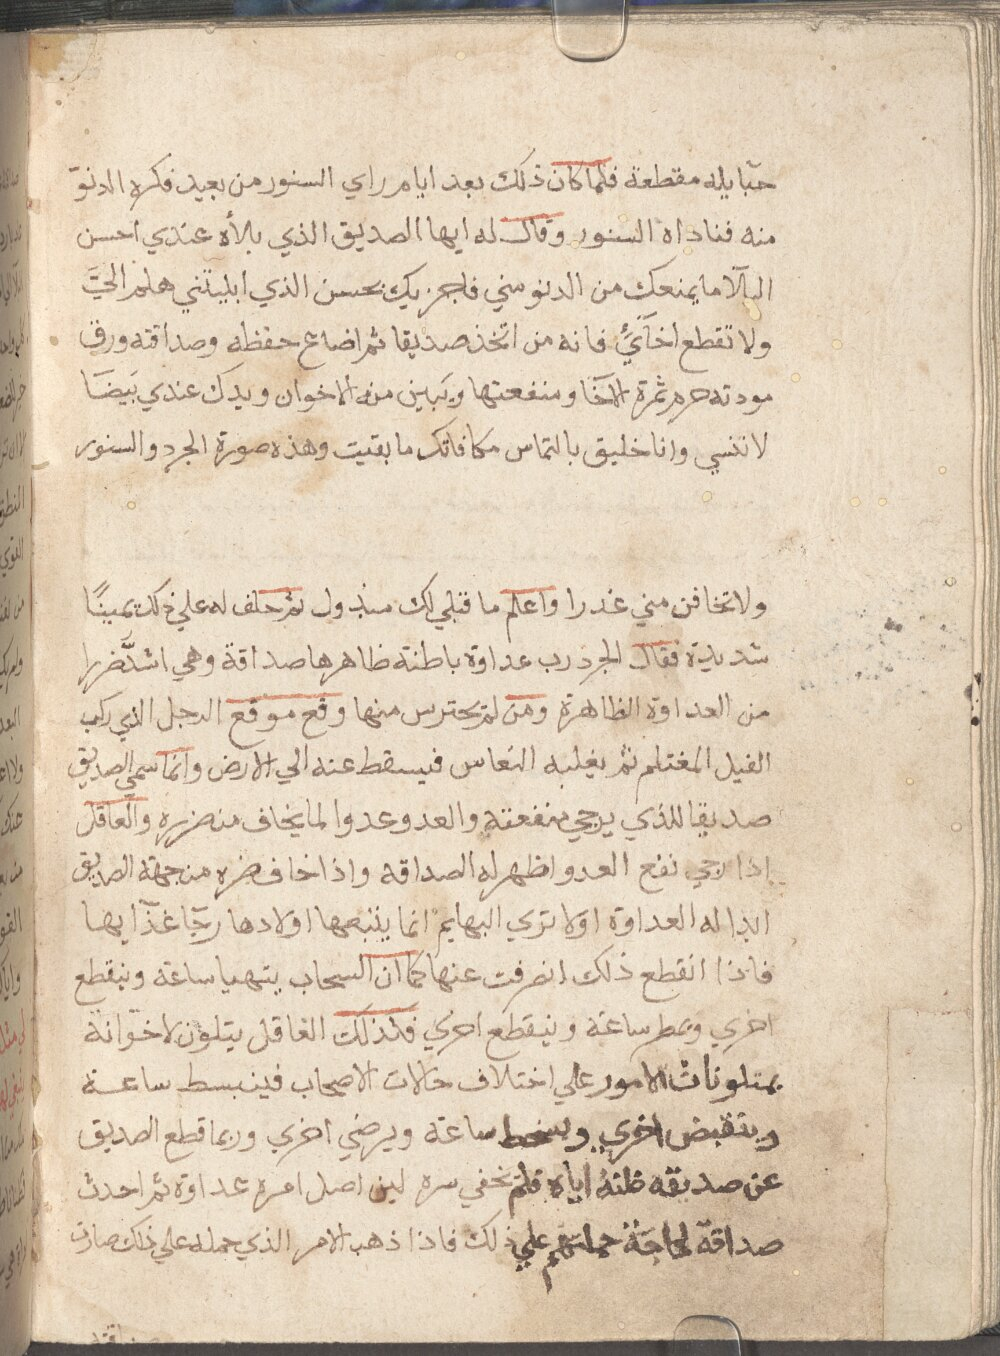 حبايله مقطعة فلما كان ذلك بعد ايام راي السنور من بعيد فكره الدنو
منه فناداه السنور وقال له ايها الصديق الذي بلاه عندي احسن
البلا ما يمنعك من الدنو مني فاجزيك بحسن الذي ابليتني هلم الي
ولا تقطع اخآئي فانه من اتخذ صديقا ثم اضاع حفظه وصداقته ورفى
مودته حرم ثمرة الاخا ومنفعتها ويبين منه الاخوان ويدك عندي بيضا
لا تنسي وانا خليق بالتماس مكافاتك ما بقيت وهذه صورة الجرد والسنور
ولا تخافن مني غدرا واعلم ما قبلي لك مبذول ثم حلف له علي ذلك يمينًا
شديدة فقال الجرد رب عداوة باطنة ظاهرها صداقة وهي اشد ضررا
من العداوة الظاهرة ومن لم يحترس منها وقع موقع الرجل الذي ركب
الفيل المغتلم ثم يغلبه النعاس فيسقط عنه الي الارض وانما سمي الصديق
صديقا للذي يرجي منفعته والعدو عدوا لما يخاف من ضرره والعاقل
اذا رجي نفع العدو اظهر له الصداقة واذا خاف ضره من جهة الصديق
ابدا له العداوة اولا تري البهايم انما يتبعها اولادها رجا غذايها
فاذا انقطع ذلك انصرفت عنها كما ان السحاب يتهيا ساعة وينقطع
اخري ويمطر ساعة وينقطع اخري فكذلك العاقل يتلون لاخوانه
بمتلونات الامور علي اختلاف حالات الاصحاب فينبسط ساعة
وينقبض اخري ويسخط ساعة ويرضي اخري وربما قطع الصديق
عن صديقه ظنه اياه فلم يخفي سره لين اصل امره عداوة ثم احدث
صداقة لحاجة حملتهم علي ذلك فاذا ذهب الامر الذي حمله علي ذلك صارت